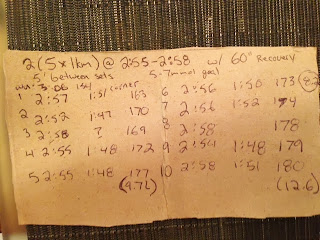 2(5x1km) @ 2:55-2:58 w/ 60" Recovery
5' between sets 5-7mmol goal
3:06 1st/ corner
1 2:57 1:51 163 6 2:56 1:50 173 (8.2
2 2:52 1:47 170 7 2:56 1:52 174
3 2:58 ? 169 8 2:58 178
4 2:55 1:48 172 9 1:48 179
5 2:55 1:48 177 10 2:58 1:51 180
(9.7L) (12.6)